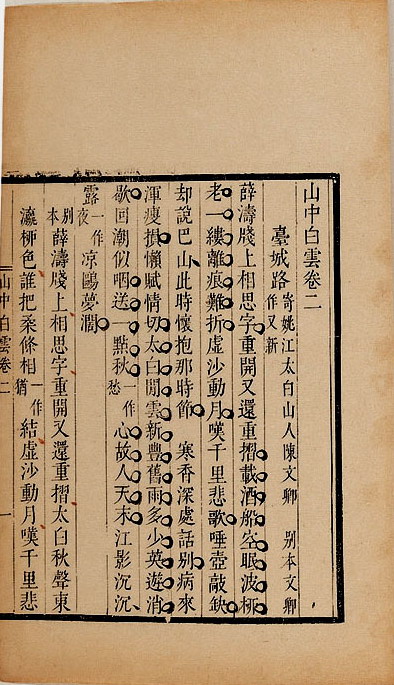 山中白雲卷二
臺城路寄姚江太白山人陳文卿 別本文卿作又新
薛濤牋上相思字重開又還重摺載酒船空眠波柳
老一縷離痕難折虛沙動月嘆千里悲歌唾壺敲缺
却說巴山此時懷抱那時節 寒香深處話別病來
渾瘦損懶賦情切太白閒雲新豐舊雨多少英遊消
歇回潮似咽送一點秋愁一作心故人天末江影沉沉
露一作夜凉鷗夢濶
別本薛濤牋上相思字重開又還重摺太白秋聲東
瀛栁色誰把柔條相一作猶結虛沙動月嘆千里悲
山中白雲卷二
一